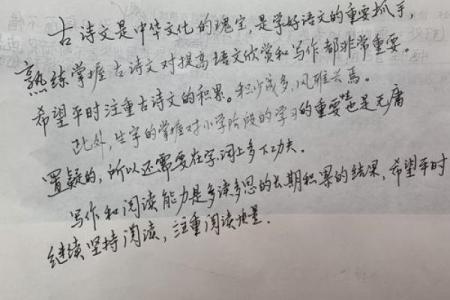 古诗文是中华文化的瑰宝，是学好语文的重要抓手，
熟练掌握古诗文对提高语文欣赏和写作都非常重要。
希望平时注重古诗文的积累。积少成多，风雅兴焉。
此外，生字的掌握对小学阶段的学习的重要性也是无庸
置疑的，所以还需要在字词上多下功夫。
写作和阅读能力是多读多思的长期积累的结果，希望平时
继续坚持阅读，注重阅读质量.